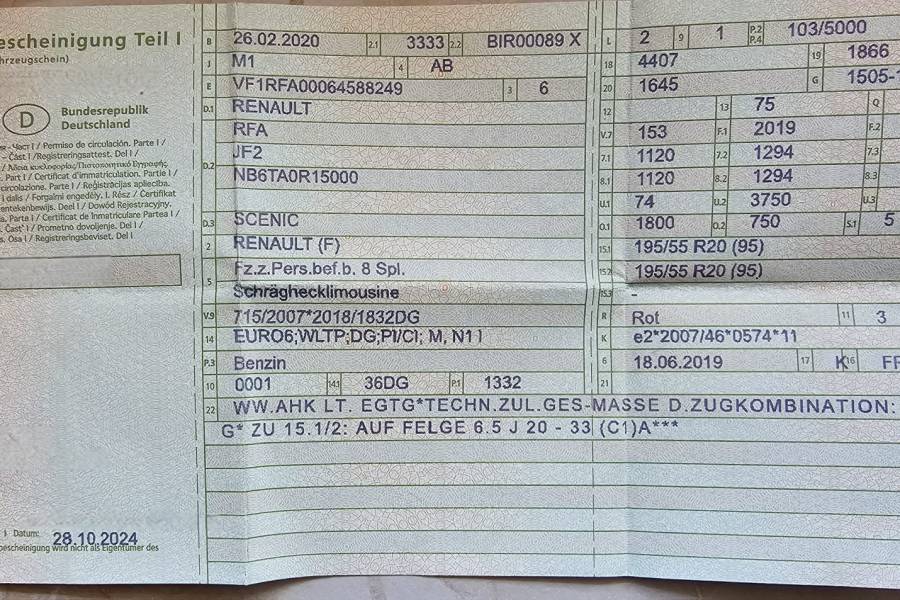 escheinigung Teil I
hrzeugschein)
D Bundesrepublik
Deutschland
Част I / Permiso de circulación. Parte I /
Část I /Registreringsattest. Del I /
Part I / Certificat d'immatriculation. Partie I /
circolazione. Parte I / Reģistrācijas apliecība.
I dalis / Forgalmi engedély. I. Rész / Ċertifikat
entekenbewijs. Deel I / Dowód Rejestracyjny.
a. Parte I / Certificat de înmatriculare Partea I /
Časť I / Prometno dovoljenje. Del I /
Osa I / Registreringsbeviset. Del I
Datum: 28.10.2024
bescheinigung wird nicht als Eigentümer des
B 26.02.2020 2.1 3333 2.2 BIR00089 X
J M1 4 AB
E VF1RFA00064588249 3 6
D.1 RENAULT
RFA
D.2 JF2
NB6TA0R15000
D.3 SCENIC
2 RENAULT (F)
5 Fz.z.Pers.bef.b. 8 Spl.
Schräghecklimousine
V.9 715/2007*2018/1832DG
14 EURO6;WLTP;DG;PI/CI; M, N1 I
P.3 Benzin
10 0001 14.1 36DG P.1 1332
L 2 9 1 P.2 P.4 103/5000
18 4407 19 1866
20 1645 G 1505-
12 13 75 Q
V.7 153 F.1 2019 F.2
7.1 1120 7.2 1294 7.3
8.1 1120 8.2 1294 8.3
U.1 74 U.2 3750 U.3
O.1 1800 O.2 750 S.1 5
15.1 195/55 R20 (95)
15.2 195/55 R20 (95)
15.3 -
R Rot 11 3
K e2*2007/46*0574*11
6 18.06.2019 17 K 16 FF
21
22 WW.AHK LT. EGTG*TECHN.ZUL.GES-MASSE D.ZUGKOMBINATION:
G* ZU 15.1/2: AUF FELGE 6.5 J 20 - 33 (C1)A***